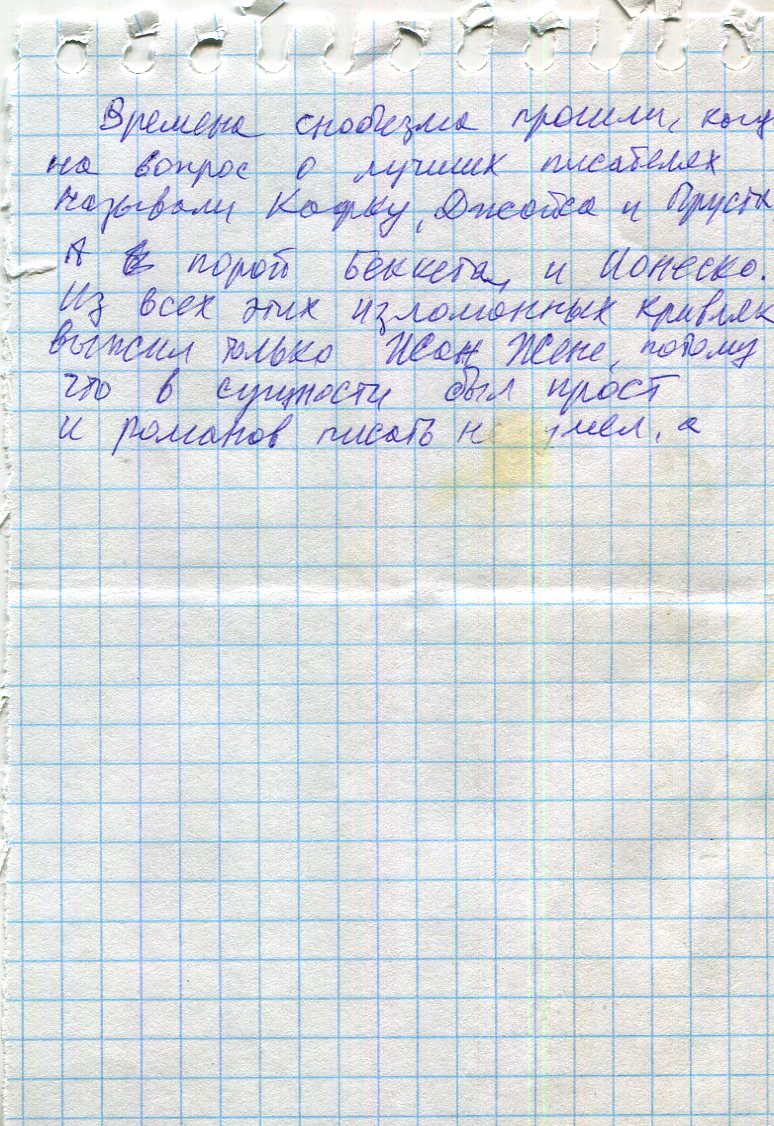 Времена снобизма прошли, когд
на вопрос о лучших писателях
называли Кафку, Джойса и Пруста
А порой Беккета, и Ионеско.
Из всех этих изломанных кривляк
выжил только Жан Жене, потому
что в сущности был прост
и романов писать н умел, а